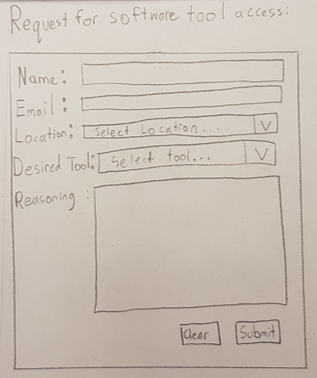 Request for software tool access:
Name:
Email:
Location: Select Location... V
Desired Tool: Select tool... V
Reasoning:
Clear Submit